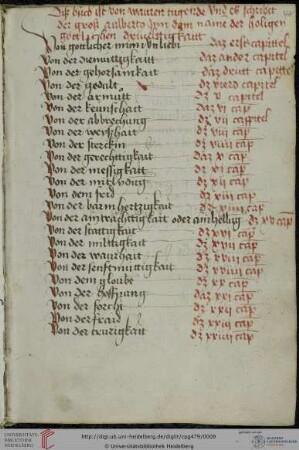 Diß buch ist von waren tugende vnd es schribt
der groß aulberto Jn dem name der hailigen
gotlichen driueltigkaitt
Von gottlicher minn vn liebi daz erst capittel
Von der diemuttigkaitt daz ander capittel
Von der gehorsamkait daz dritt capittel
Von der gedult dz vierd capittel
Von der armutt dz v capittel
Von der keuschait daz vi cap
Von der abbrechung dz vii cappittel
Von der weyshait dz viii cap
Von der sterckin dz viiii cap
Von der gerechttigkait daz x cap
Von der messigkait dz xi cap
Von der mitlydung dz xii cap
Von dem frid dz xiii cap
Von der barmhertzigkait dz xiiii cap
Von der aintrachttigkait oder ainhellig dz xv cap
Von der stattigkait dz xvi cap
Von der miltigkait dz xvii cap
Von der waurhait dz xviii cap
Von der senfftmuttigkait dz xviiii cap
Von dem gloube dz xx cap
Von der hoffnung daz xxi cap
Von der forcht dz xxii cap
Von der fraid dz xxiii cap
Von der trurigkait dz xxiiii cap
UNIVERSITÄTS-
BIBLIOTHEK
HEIDELBERG
http://digi.ub.uni-heidelberg.de/diglit/cpg479/0009
© Universitätsbibliothek Heidelberg.